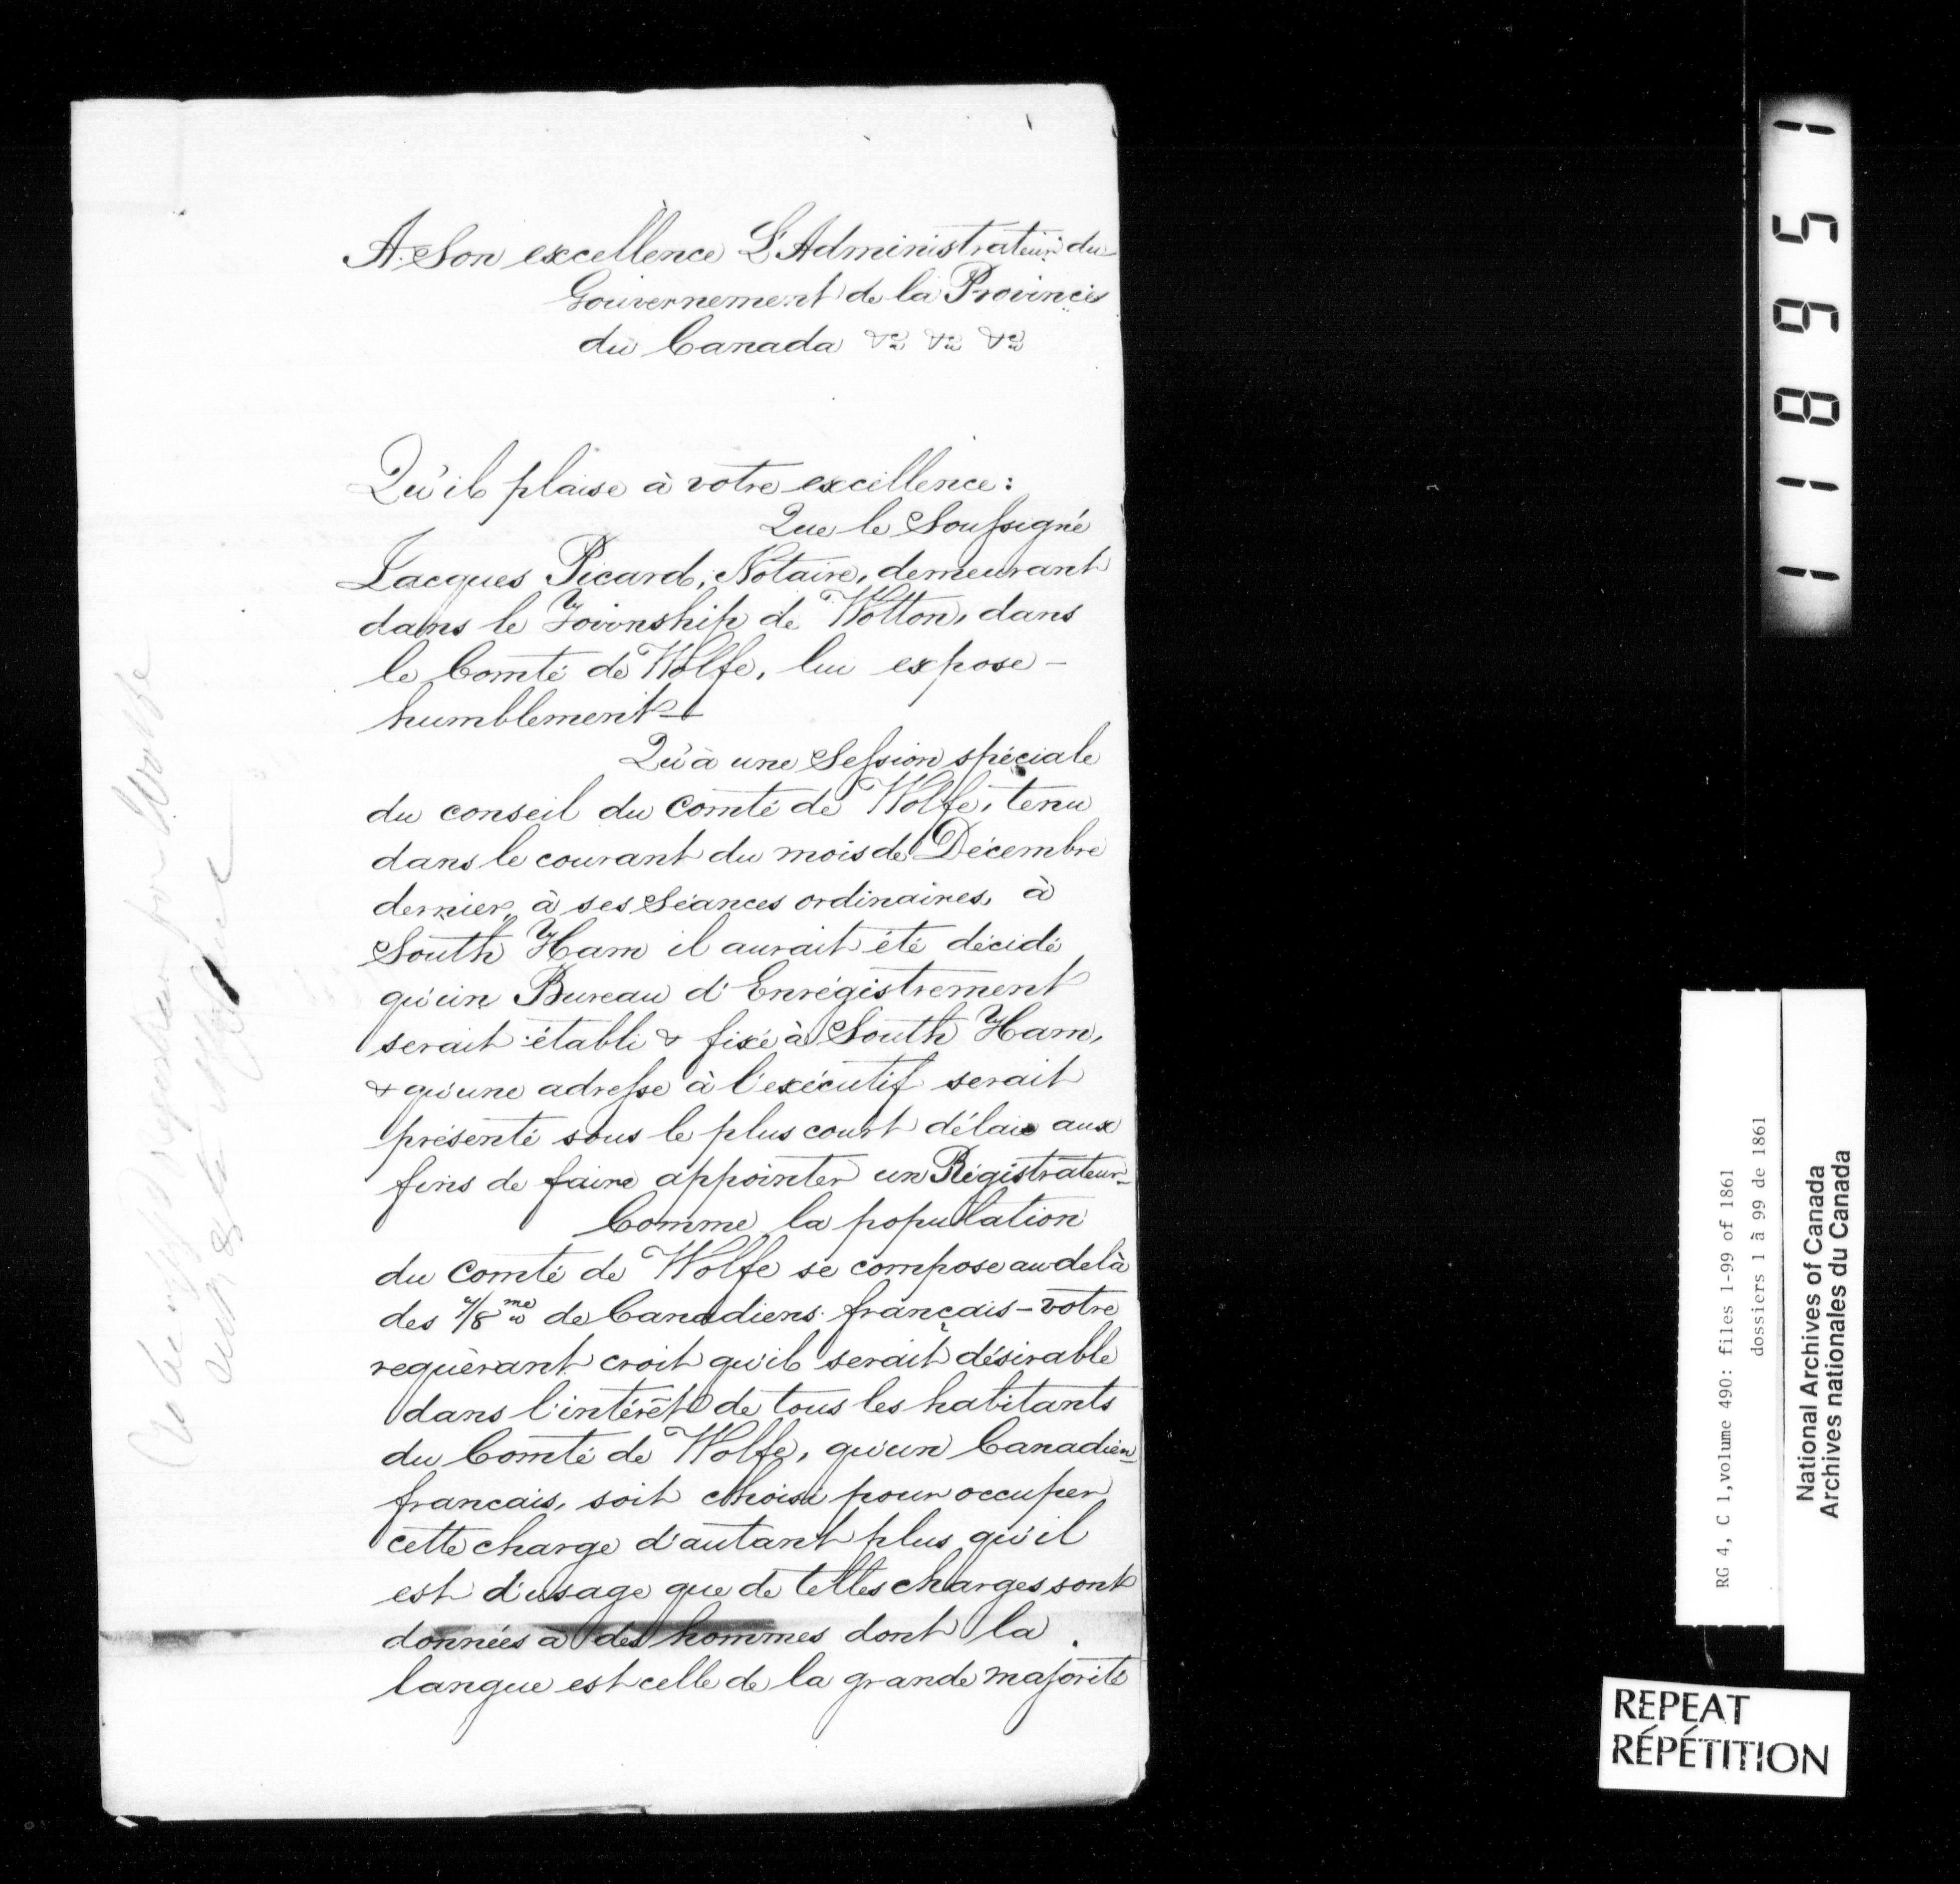 A Son excellence L'Administrateur du
Gouvernement de la Province
du Canada &c &c &c
Qu'il plaise à votre excellence:
Que le Soussigné
Jacques Picard, Notaire, demeurant
dans le Township de Wotton, dans
le Comté de Wolfe, lui expose -
humblement -
Qu'à une Session spéciale
du conseil du comté de Wolfe, tenu
dans le courant du mois de Décembre
dernier, à ses Séances ordinaires, à
South Ham il aurait été décidé
qu'un Bureau d'Enrégistrement
serait établi & fixé à South Ham,
& qu'une adresse à l'exécutif serait
présenté sous le plus court délai aux
fins de faire appointer un Régistrateur-
Comme la population
du comté de Wolfe se compose au delà
des 7/8me de Canadiens français - votre
requèrant croit qu'il serait désirable
dans l'intérêt de tous les habitants
du Comté de Wolfe, qu'un Canadien
francais, soit choisi pour occuper
cette charge d'autant plus qu'il
est d'usage que de telles charges sont
données à des hommes dont la
langue est celle de la grande majorité
To be Registrar for Wolfe
1 1 8 6 5 1
RG 4, C 1,volume 490: files 1-99 of 1861
dossiers 1 à 99 de 1861
National Archives of Canada
Archives nationales du Canada
REPEAT
RÉPÉTITION